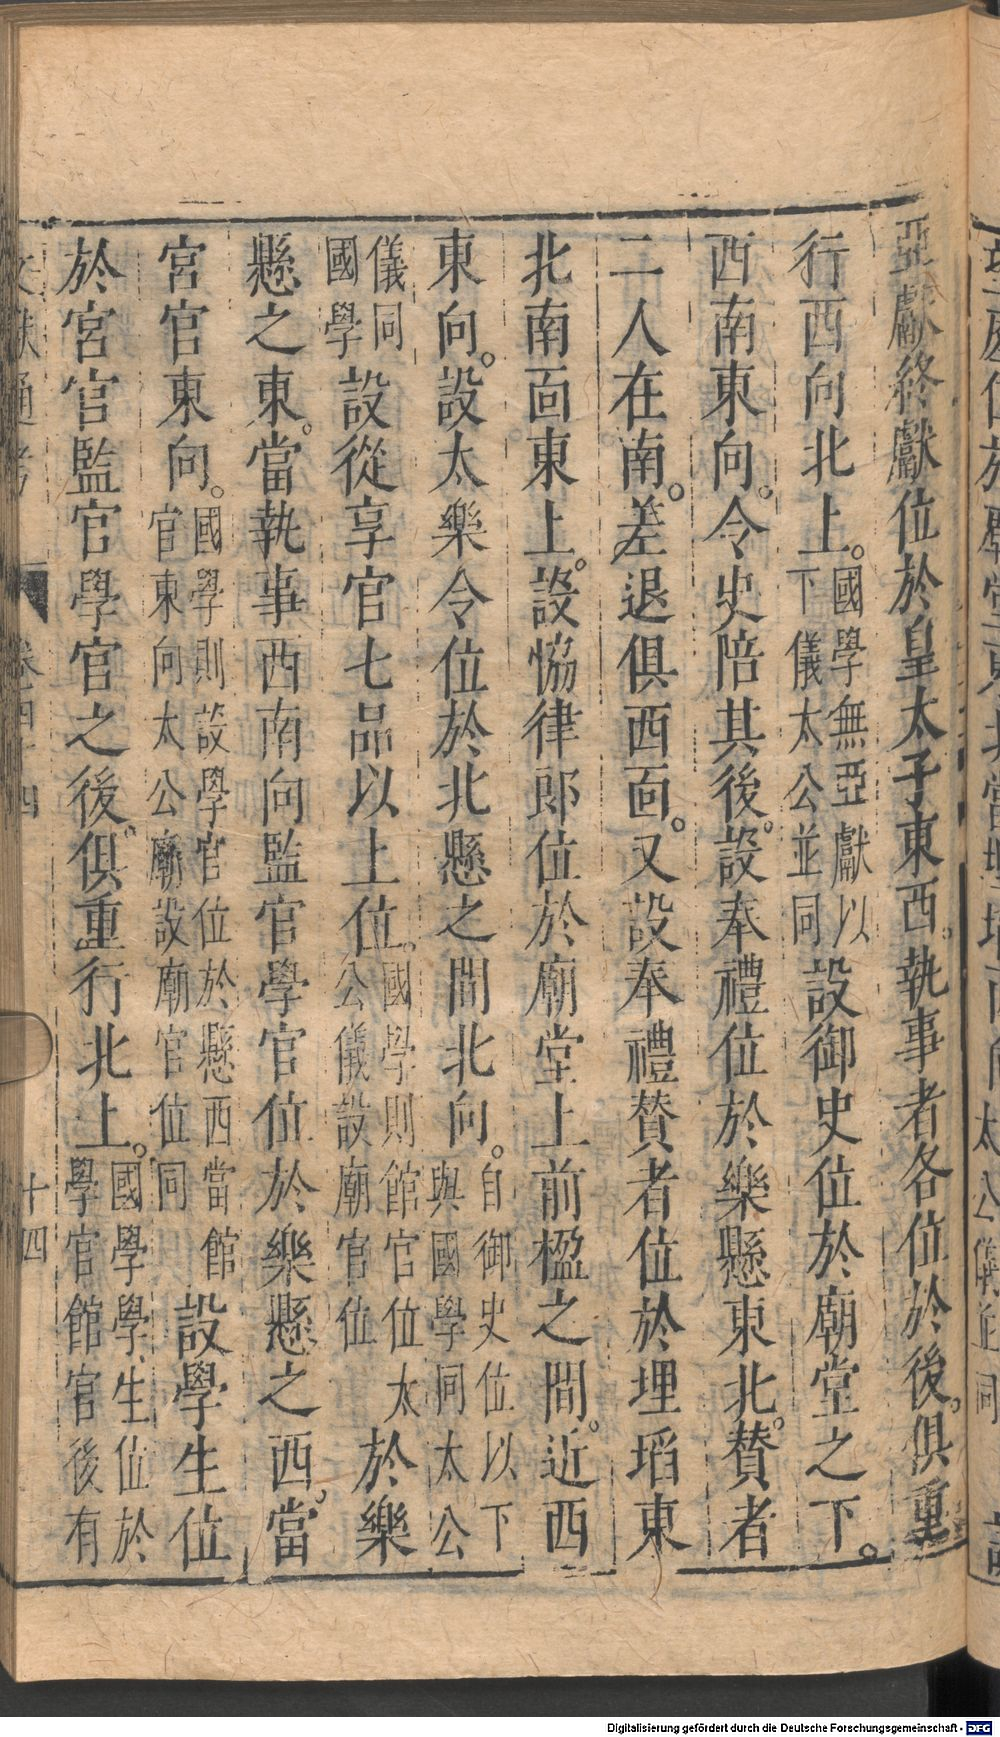 亞獻終獻位於皇太子東西執事者各位於後。俱重
行西向北上。國學無亞獻以下儀太公並同設御史位於廟堂之下。
西南東向。令史陪其後。設奉禮位於樂懸東北。贊者
二人在南。差退俱西面。又設奉禮贊者位於埋瘞東
北南面東上。設協律郎位於廟堂上前楹之間。近西
東向。設太樂令位於北懸之間北向。自御史位以下與國學同太公
儀同國學設從享官七品以上位。國學則館官位太公儀設廟官位於樂
懸之東。當執事西南向監官學官位於樂懸之西。當
宮官東向。國學則設學官位於懸西當館官東向太公廟設廟官位同設學生位
於宮官監官學官之後。俱重行北上。國學學生位於學官館官後有
文獻通考 卷四十四 十四
Digitalisierung gefördert durch die Deutsche Forschungsgemeinschaft - DFG